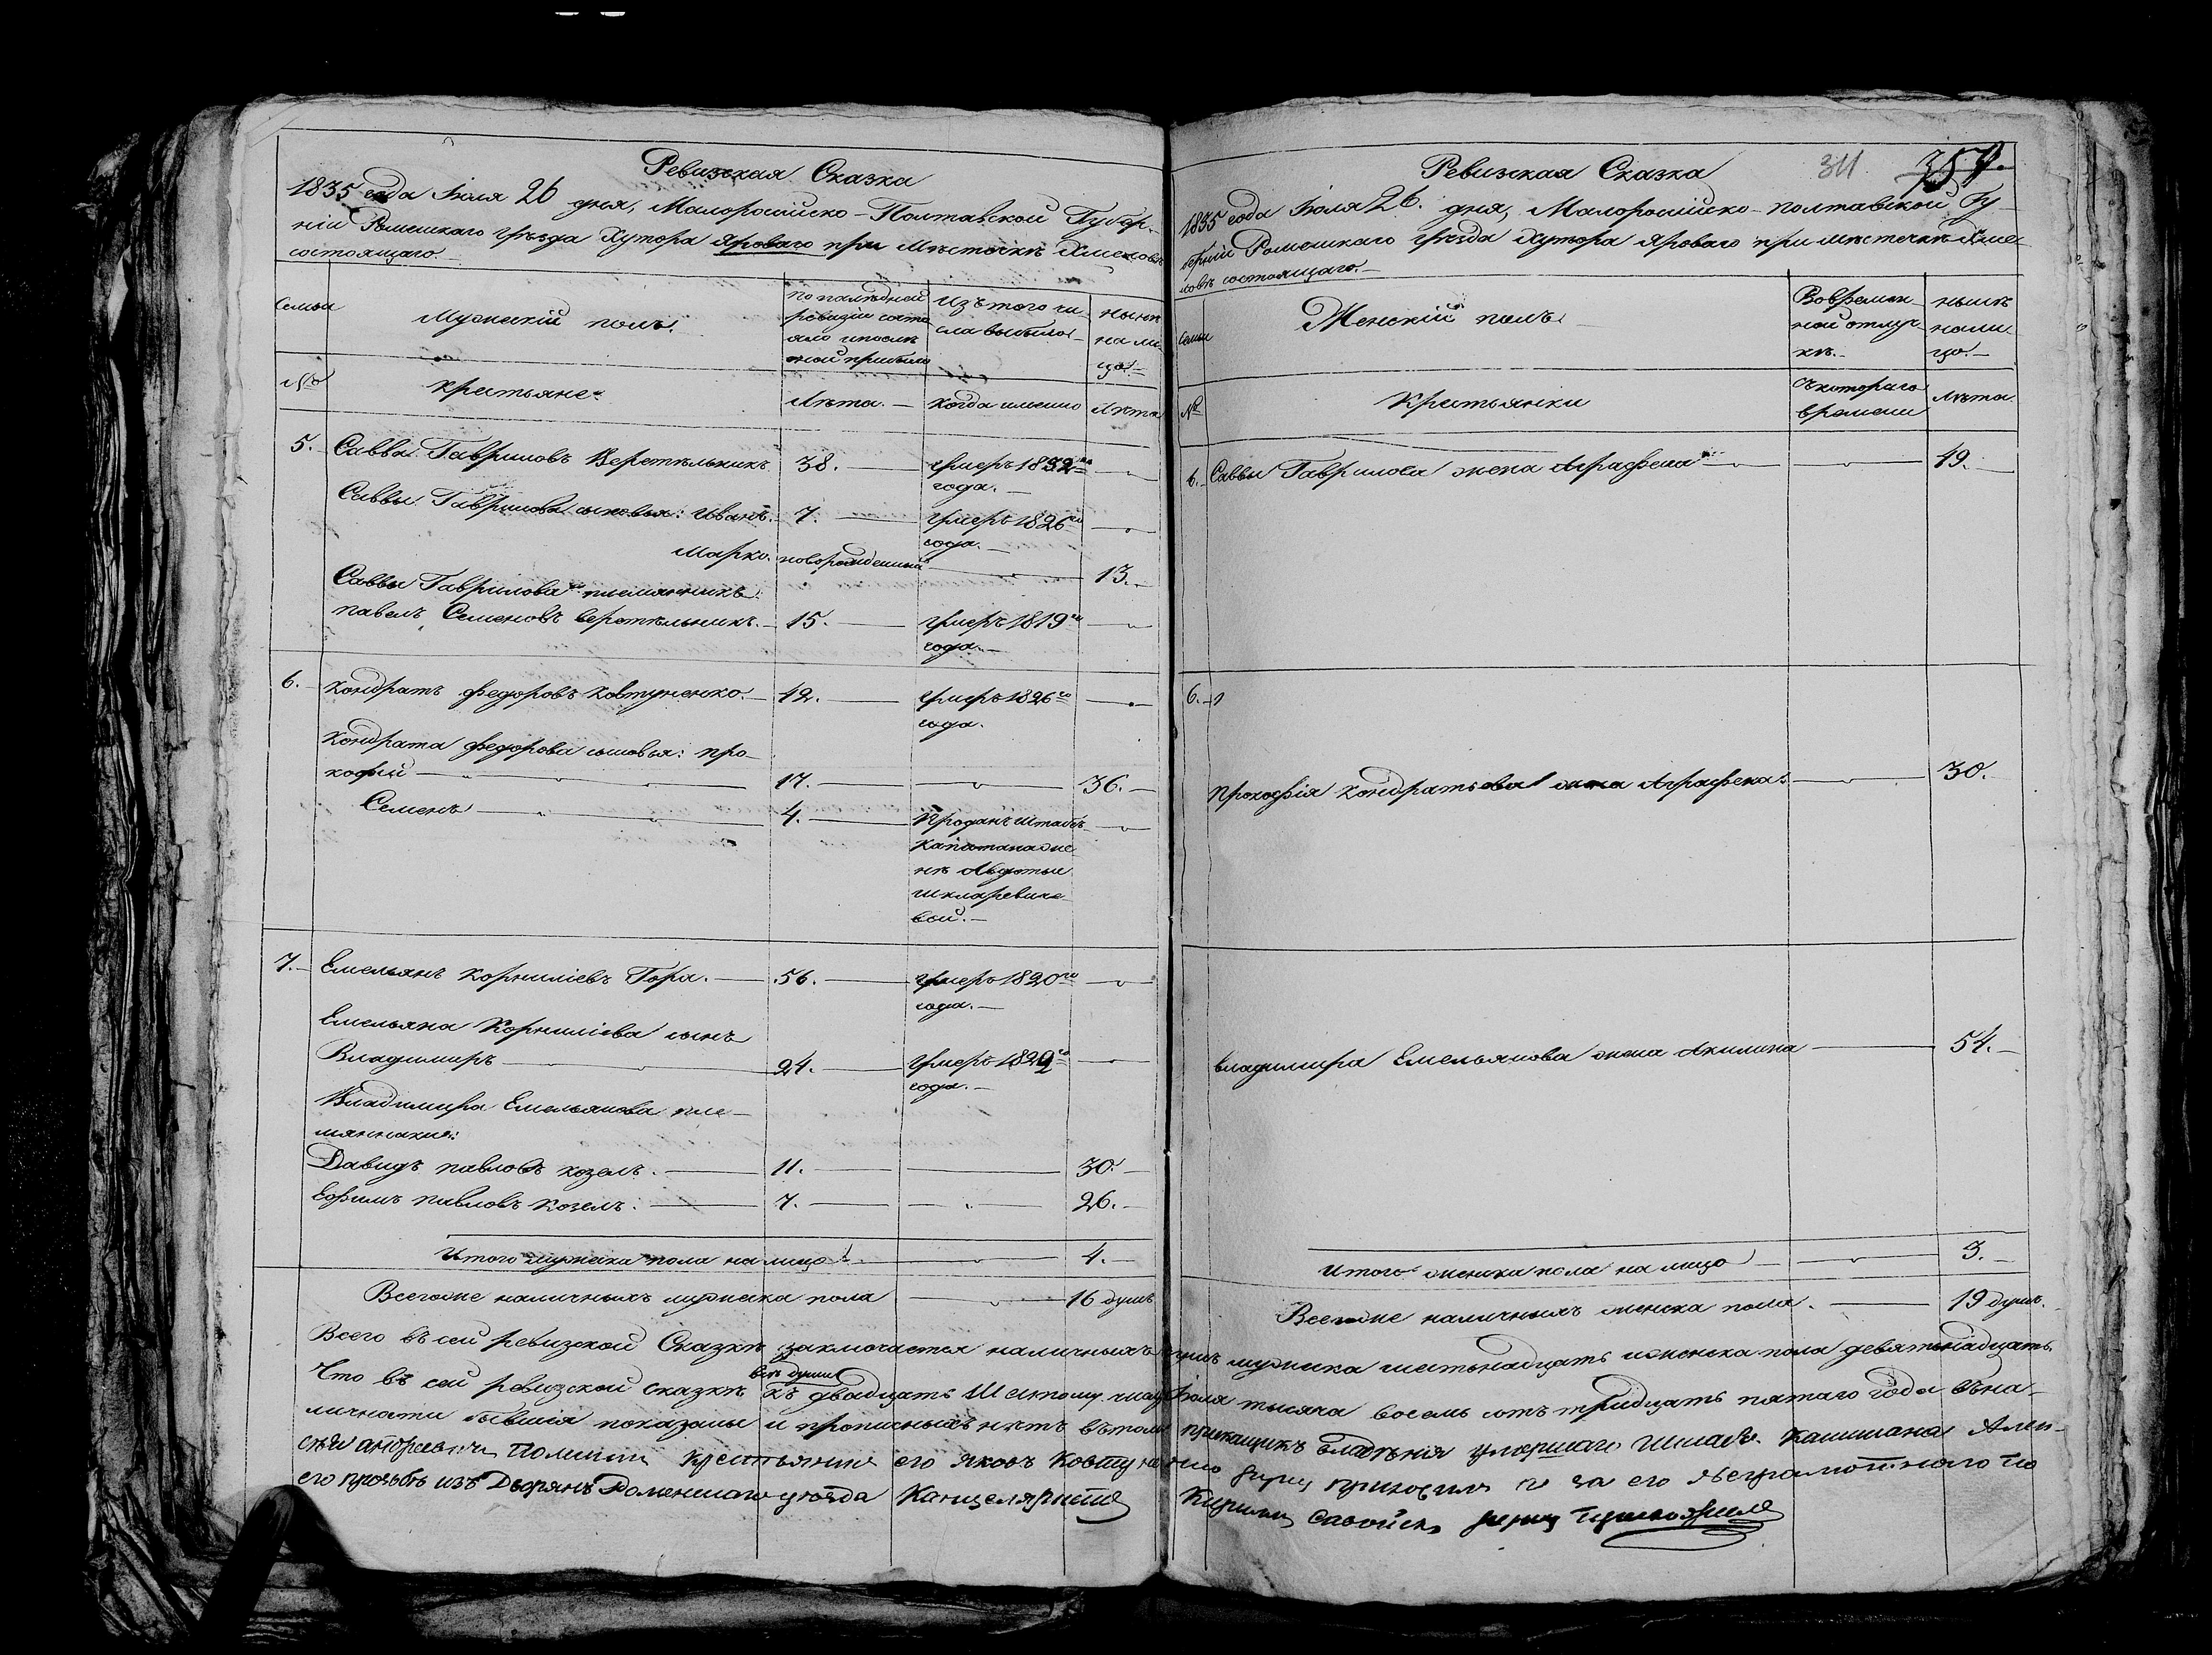 Ревизская Сказка
1835 года Іюля 26 дня, Малоросійско-Полтавской Губер-
ніи Роменскаго уѣзда Хутора Яроваго при Мѣстечкѣ Хмеловѣ
состоящаго
Семьи
Мужескій полъ.
По послѣдней
ревизіи состо
яло и послѣ
оной прибыло
Изъ того чи
сла выбыло
нынѣ
на ли
цо.
№
Крестьяне.
Лѣта.
Когда именно
Лѣта
5. Савва Гавриловъ Веретѣльникъ 38. умеръ 1832го
года.
Саввы Гаврилова сыновья: Иванъ. 7. умеръ 1826го
года.
Марко. новорожденный 13.
Саввы Гаврилова племянникъ
павелъ Семеновъ веретѣльникъ. 15. умеръ 1819го
года.
6. Кондратъ федоровъ Ковтуненко. 42. умеръ 1826го
года.
Кондрата федорова сыновья: про-
кофій 17. 36.
Семенъ 4. Проданъ штабсъ
капитанше
нѣ Авдотьи
шкляревиче
вой.
7. Емельянъ Корниліевъ Гора. 56. умеръ 1820го
года.
Емельяна Корниліева сынъ
Владимиръ 24. умеръ 1822го
года.
Владимира Емельянова пле-
мянники:
Давидъ павловъ козелъ. 11. 30.
Ефимъ павловъ козелъ. 7. 26.
Итого мужеска пола на лицо 4.
Всегоже наличныхъ мужеска пола 16 душъ
Ревизская Сказка
311 357.
1835 года Іюля 26. дня, Малоросійско-полтавской Гу
берніи Роменскаго уѣзда Хутора Яроваго при мѣстечкѣ Хме
ловѣ состоящаго.
Семьи
Женскій полъ.
Во времен
ной отлуч
кѣ.
нынѣ
нали
цо.
№
Крестьянки
Съ котораго
времени
Лѣта
5. Саввы Гаврилова жена Аграфена 49.
6.
Прокофія Кондратьева жена Аграфена. 30.
владимира Емельянова жена Акилина 54.
Итого женска пола на лицо 3.
Всегоже наличныхъ женска пола. 19 душъ.
Всего въ сей ревизской Сказкѣ заключается наличныхъ душъ мужеска шестьнадцать и женска пола девятьнадцать
всѣ души
Что въ сей ревизской сказкѣ къ двадцать Шестому числу Іюля тысяча восемь сотъ тридцать пятаго года въ на-
личности бывшія показаны и прописныхъ нѣтъ въ томъ прикащикъ владѣнія умершаго Штабсъ Капитана Алек-
сѣя Андреевича крестьянинъ его Яковъ Ковтуненко руку приложилъ а за его неграмотнаго по
его прозьбѣ изъ Дворянъ Роменскаго уѣзда Канцеляристъ Кирилъ руку приложилъ